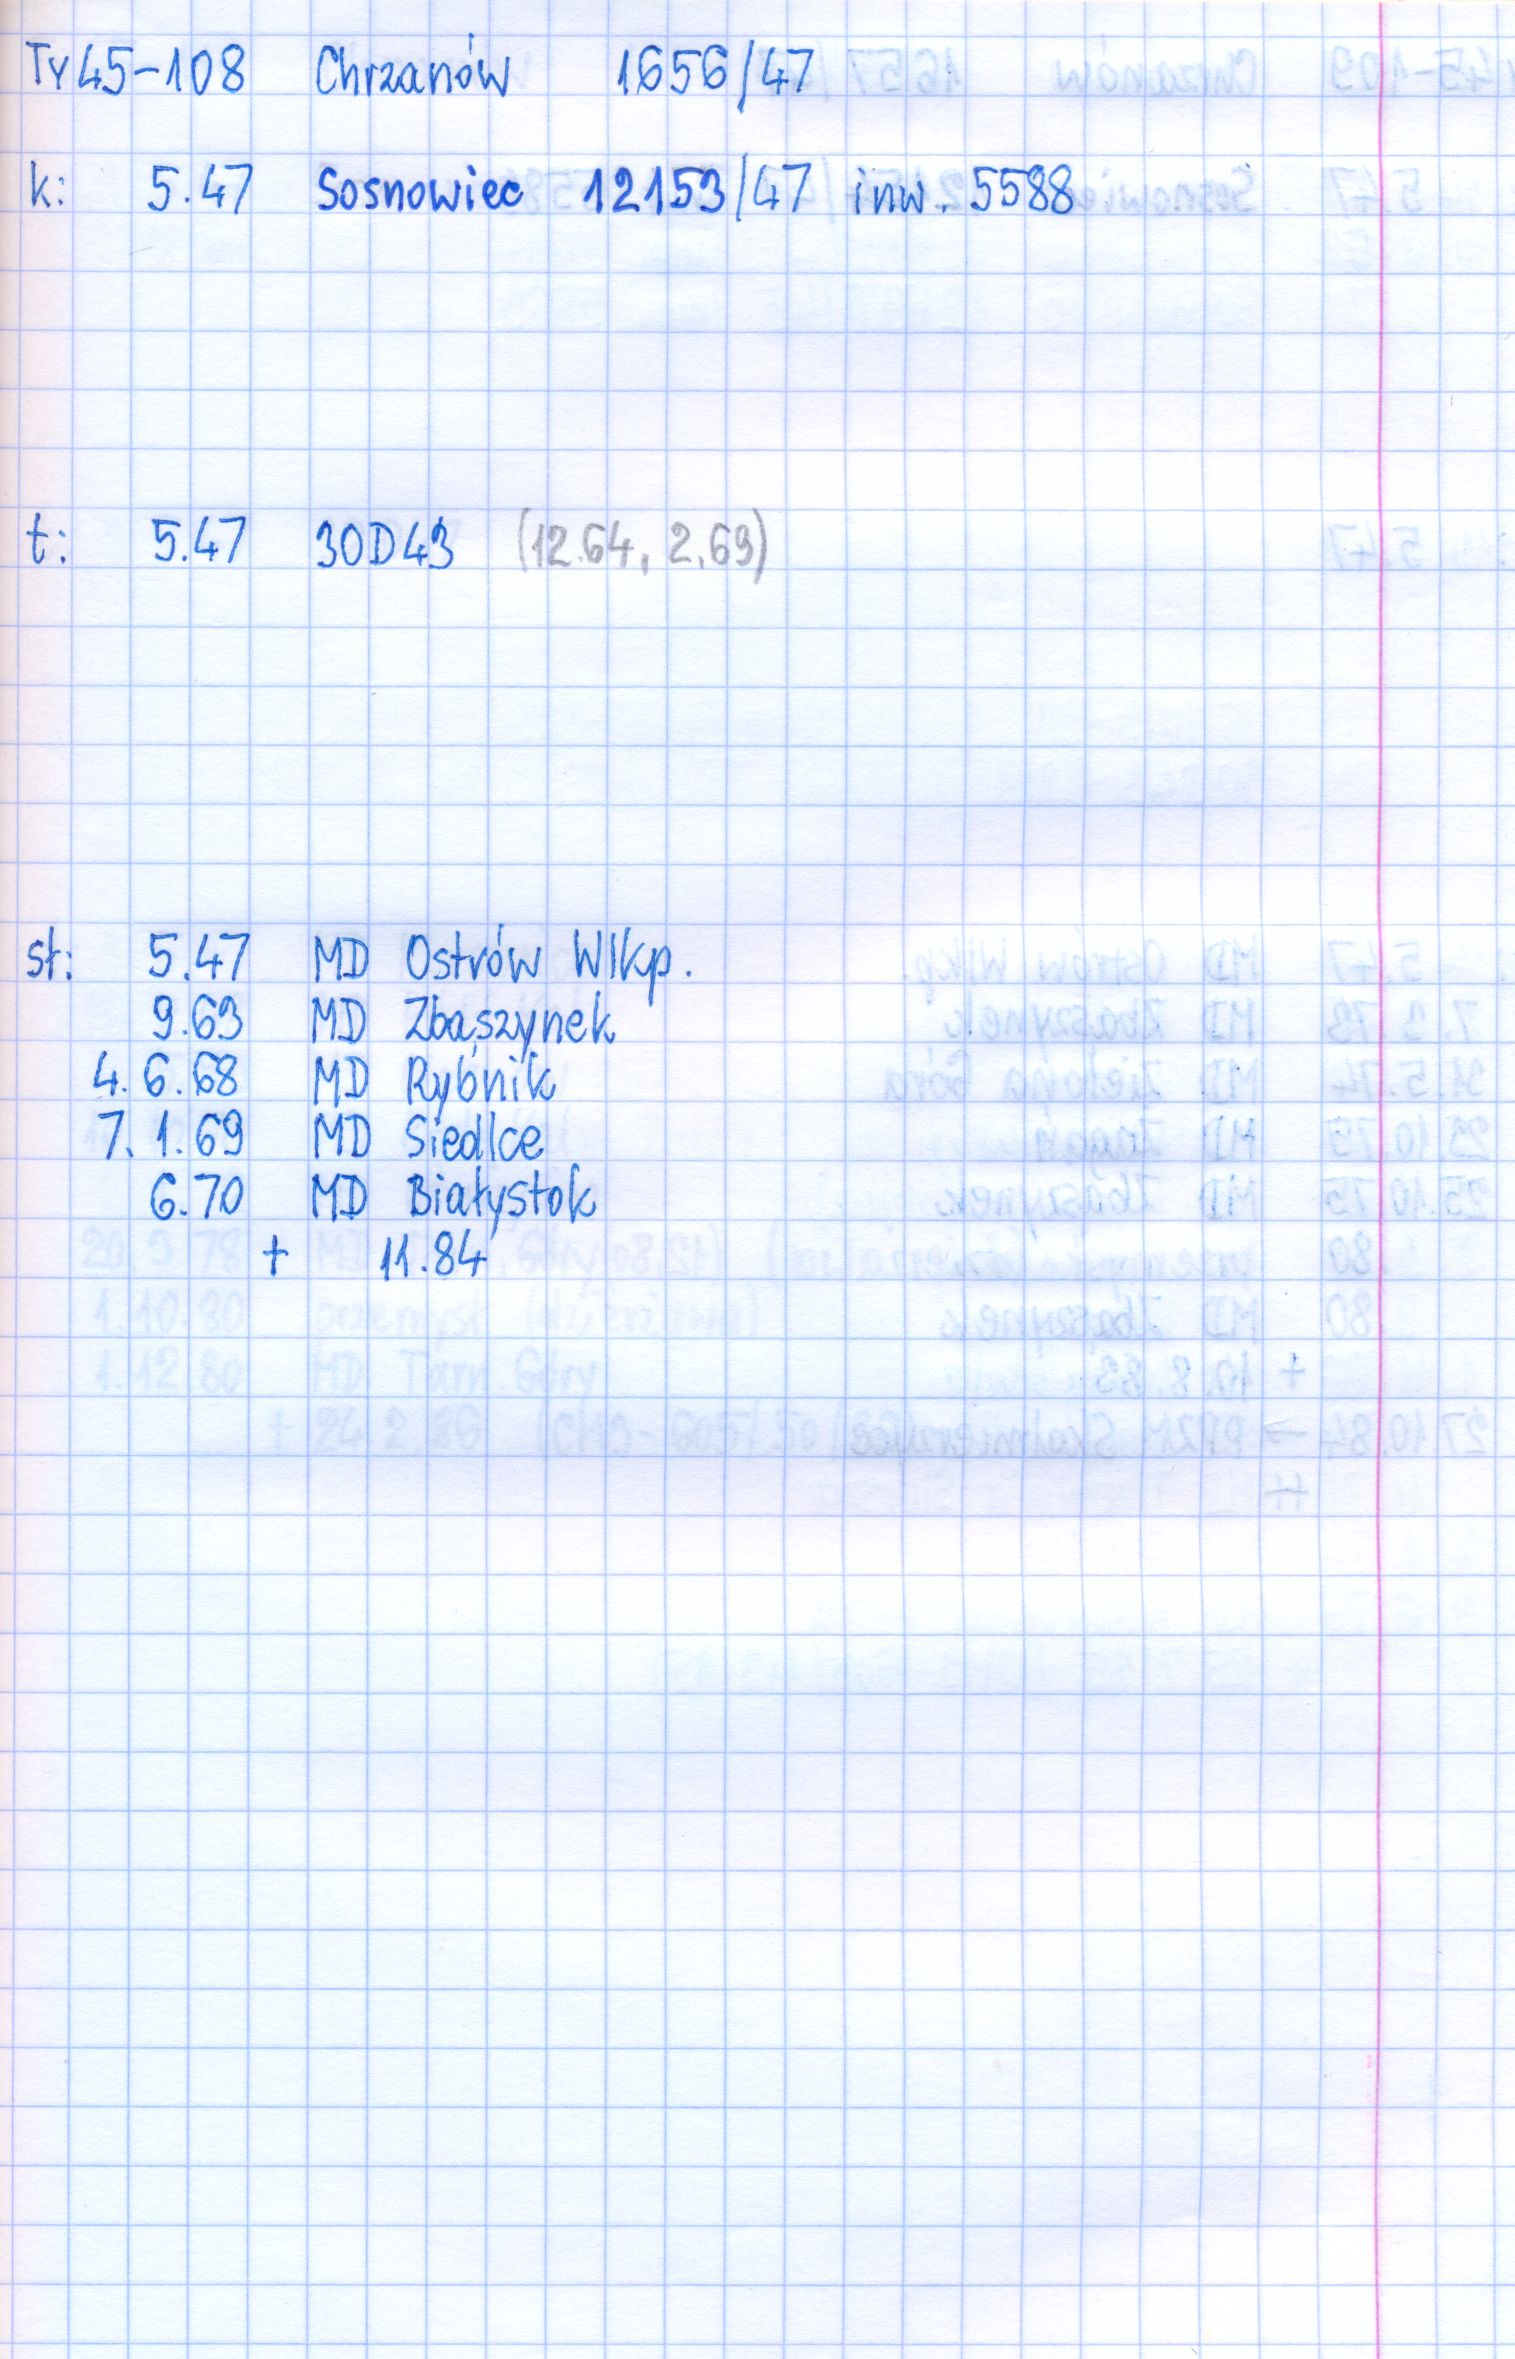 Ty45-108 Chrzanów 1656/47
k: 5.47 Sosnowiec 12153/47 inw. 5588
t: 5.47 30D43 (12.64, 2.69)
sł: 5.47 MD Ostrów Wlkp.
9.63 MD Zbąszynek
4.6.68 MD Rybnik
7.1.69 MD Siedlce
6.70 MD Białystok
+ 11.84